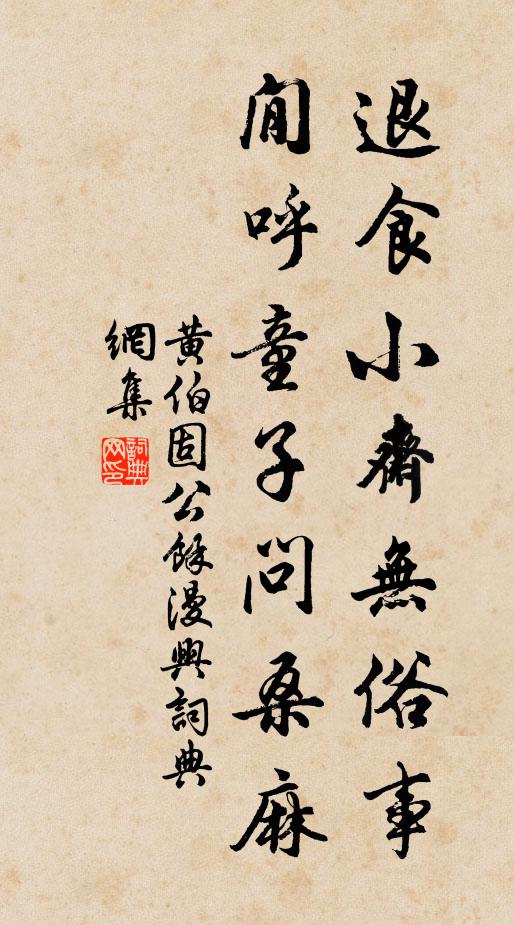 退食小齋無俗事
閒呼童子問桑麻
黃伯固公餘漫興詞典
網集
詞典
网印